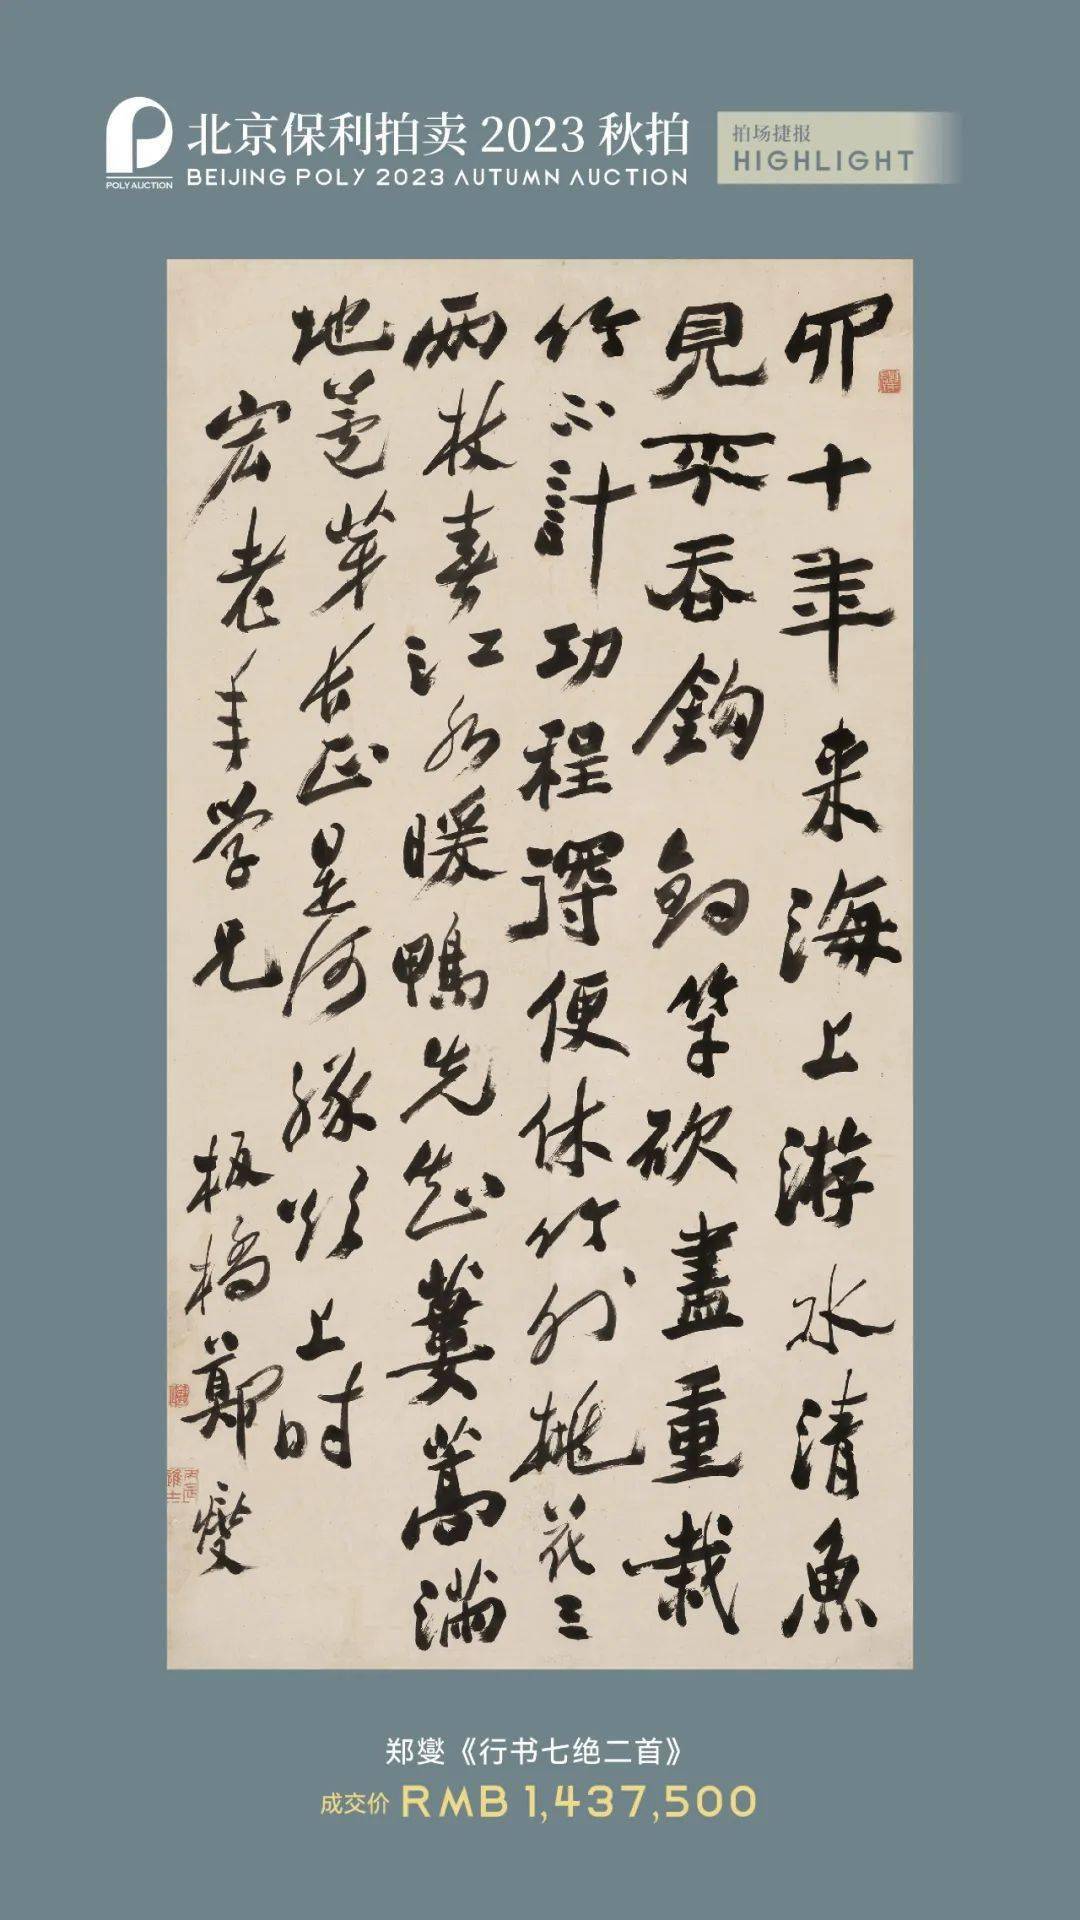 POLY AUCTION
北京保利拍卖 2023 秋拍
BEIJING POLY 2023 AUTUMN AUCTION
拍场捷报
HIGHLIGHT
四十年来海上游水清魚
見不吞鈎釣竿砍盡重栽
竹不計功程得便休竹外桃花三
兩枝春江水暖鴨先知蔞蒿滿
地蘆芽短正是河豚欲上時
宏老年學兄
板橋鄭燮
丙辰進士
郑燮《行书七绝二首》
成交价 RMB 1,437,500